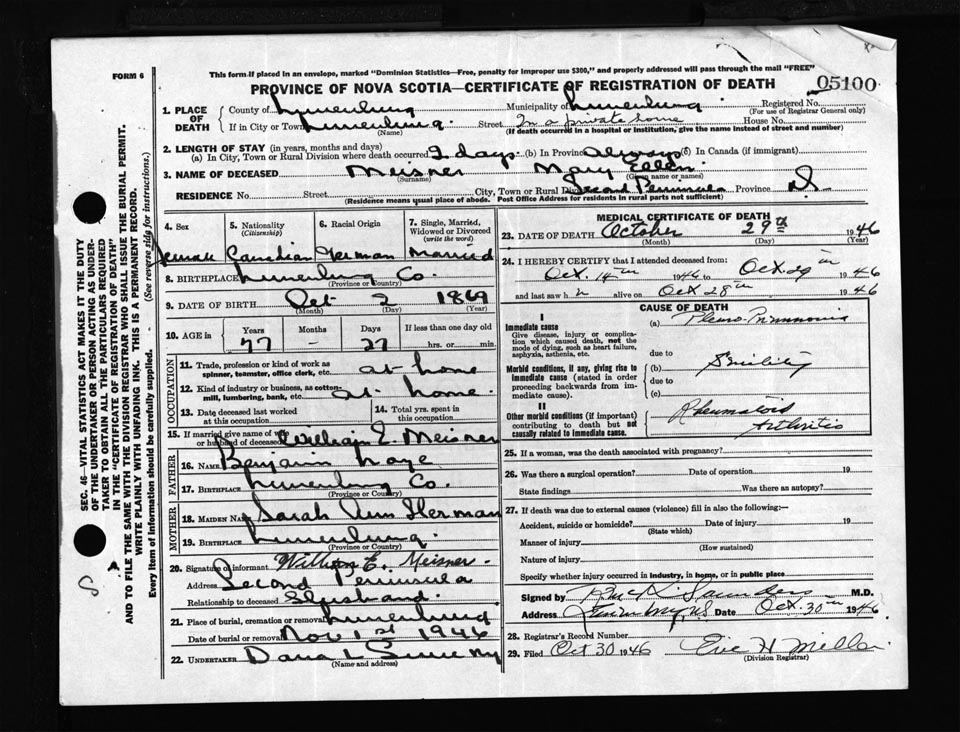 This form if placed in an envelope, marked "Dominion Statistics—Free, penalty for improper use $300," and properly addressed will pass through the mail "FREE"
FORM 6
PROVINCE OF NOVA SCOTIA—CERTIFICATE OF REGISTRATION OF DEATH
05100
1. PLACE OF DEATH
County of Lunenburg Municipality of Lunenburg Registered No.
(For use of Registrar General only)
If in City or Town Lunenburg. Street In a private home House No.
(Name) (If death occurred in a hospital or institution, give the name instead of street and number)
2. LENGTH OF STAY (in years, months and days)
(a) In City, Town or Rural Division where death occurred 2 days. (b) In Province always (c) In Canada (if immigrant)
3. NAME OF DECEASED Meisner Mary Ellen
(Surname) (Given name or names)
RESIDENCE No. Street City, Town or Rural Div. Second Peninsula Province
(Residence means usual place of abode. Post Office Address for residents in rural parts not sufficient)
4. Sex 5. Nationality (Citizenship) 6. Racial Origin 7. Single, Married, Widowed or Divorced (write the word)
Female Canadian German Married
8. BIRTHPLACE Lunenburg Co.
(Province or Country)
9. DATE OF BIRTH Oct 2 1869
(Month) (Day) (Year)
10. AGE in Years Months Days If less than one day old
77 - 27 hrs. or min.
OCCUPATION
11. Trade, profession or kind of work as spinner, teamster, office clerk, etc. at home
12. Kind of industry or business, as cotton-mill, lumbering, bank, etc. at home.
13. Date deceased last worked at this occupation
14. Total yrs. spent in this occupation
15. If married give name of wife or husband of deceased William E. Meisner
FATHER
16. Name Benjamin
17. Birthplace Lunenburg Co.
(Province or Country)
MOTHER
18. Maiden Name Sarah Ann Herman
19. Birthplace Lunenburg.
(Province or Country)
20. Signature of informant William E. Meisner.
Address Second Peninsula
Relationship to deceased Husband
21. Place of burial, cremation or removal Lunenburg
Date of burial or removal Nov 1st 1946
22. UNDERTAKER Dana L Sweeny
(Name and address)
MEDICAL CERTIFICATE OF DEATH
23. DATE OF DEATH October 29th 1946
(Month) (Day) (Year)
24. I HEREBY CERTIFY that I attended deceased from:
Oct. 14th 1946 to Oct 29th 1946
and last saw h alive on Oct 28th 1946
CAUSE OF DEATH
I
Immediate cause
Give disease, injury or complication which caused death, not the mode of dying, such as heart failure, asphyxia, asthenia, etc.
(a) Pleuro-Pneumonia
due to
Morbid conditions, if any, giving rise to immediate cause (stated in order proceeding backwards from immediate cause).
(b) Senility
due to
(c)
II
Other morbid conditions (if important) contributing to death but not causally related to immediate cause.
Rheumatoid
Arthritis
25. If a woman, was the death associated with pregnancy?
26. Was there a surgical operation? Date of operation 19
State findings Was there an autopsy?
27. If death was due to external causes (violence) fill in also the following:—
Accident, suicide or homicide? Date of injury 19
(State which)
Manner of injury
(How sustained)
Nature of injury
Specify whether injury occurred in industry, in home, or in public place
Signed by Saunders M.D.
Address Lunenburg, NS Date Oct. 30th 1946
28. Registrar's Record Number
29. Filed Oct 30 1946 Eric H Millar
(Division Registrar)
SEC. 46—VITAL STATISTICS ACT MAKES IT THE DUTY
OF THE UNDERTAKER OR PERSON ACTING AS UNDER-
TAKER TO OBTAIN ALL THE PARTICULARS REQUIRED
IN THE "CERTIFICATE OF REGISTRATION OF DEATH"
AND TO FILE THE SAME WITH THE DIVISION REGISTRAR WHO SHALL ISSUE THE BURIAL PERMIT.
WRITE PLAINLY WITH UNFADING INK. THIS IS A PERMANENT RECORD.
Every item of information should be carefully supplied. (See reverse side for instructions.)
8